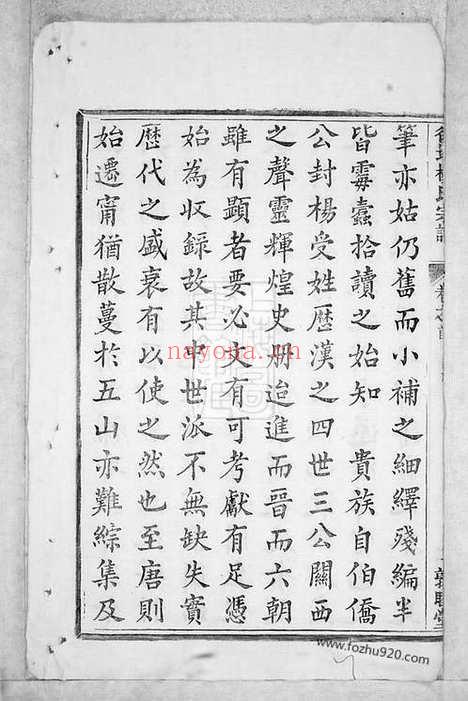 筆亦姑仍舊而小補之細繹殘編半
皆霉蠹拾讀之始知　貴族自伯僑
公封楊受姓歷漢之四世三公關西
之聲靈輝煌史册迨進而晉而六朝
雖有顯者要必文有可考獻有足憑
始為收錄故其中世派不無缺失實
歷代之盛衰有以使之然也至唐則
始遷甯猶散蔓於五山亦難綜集及
nayona.cn
www.fozhu920.com